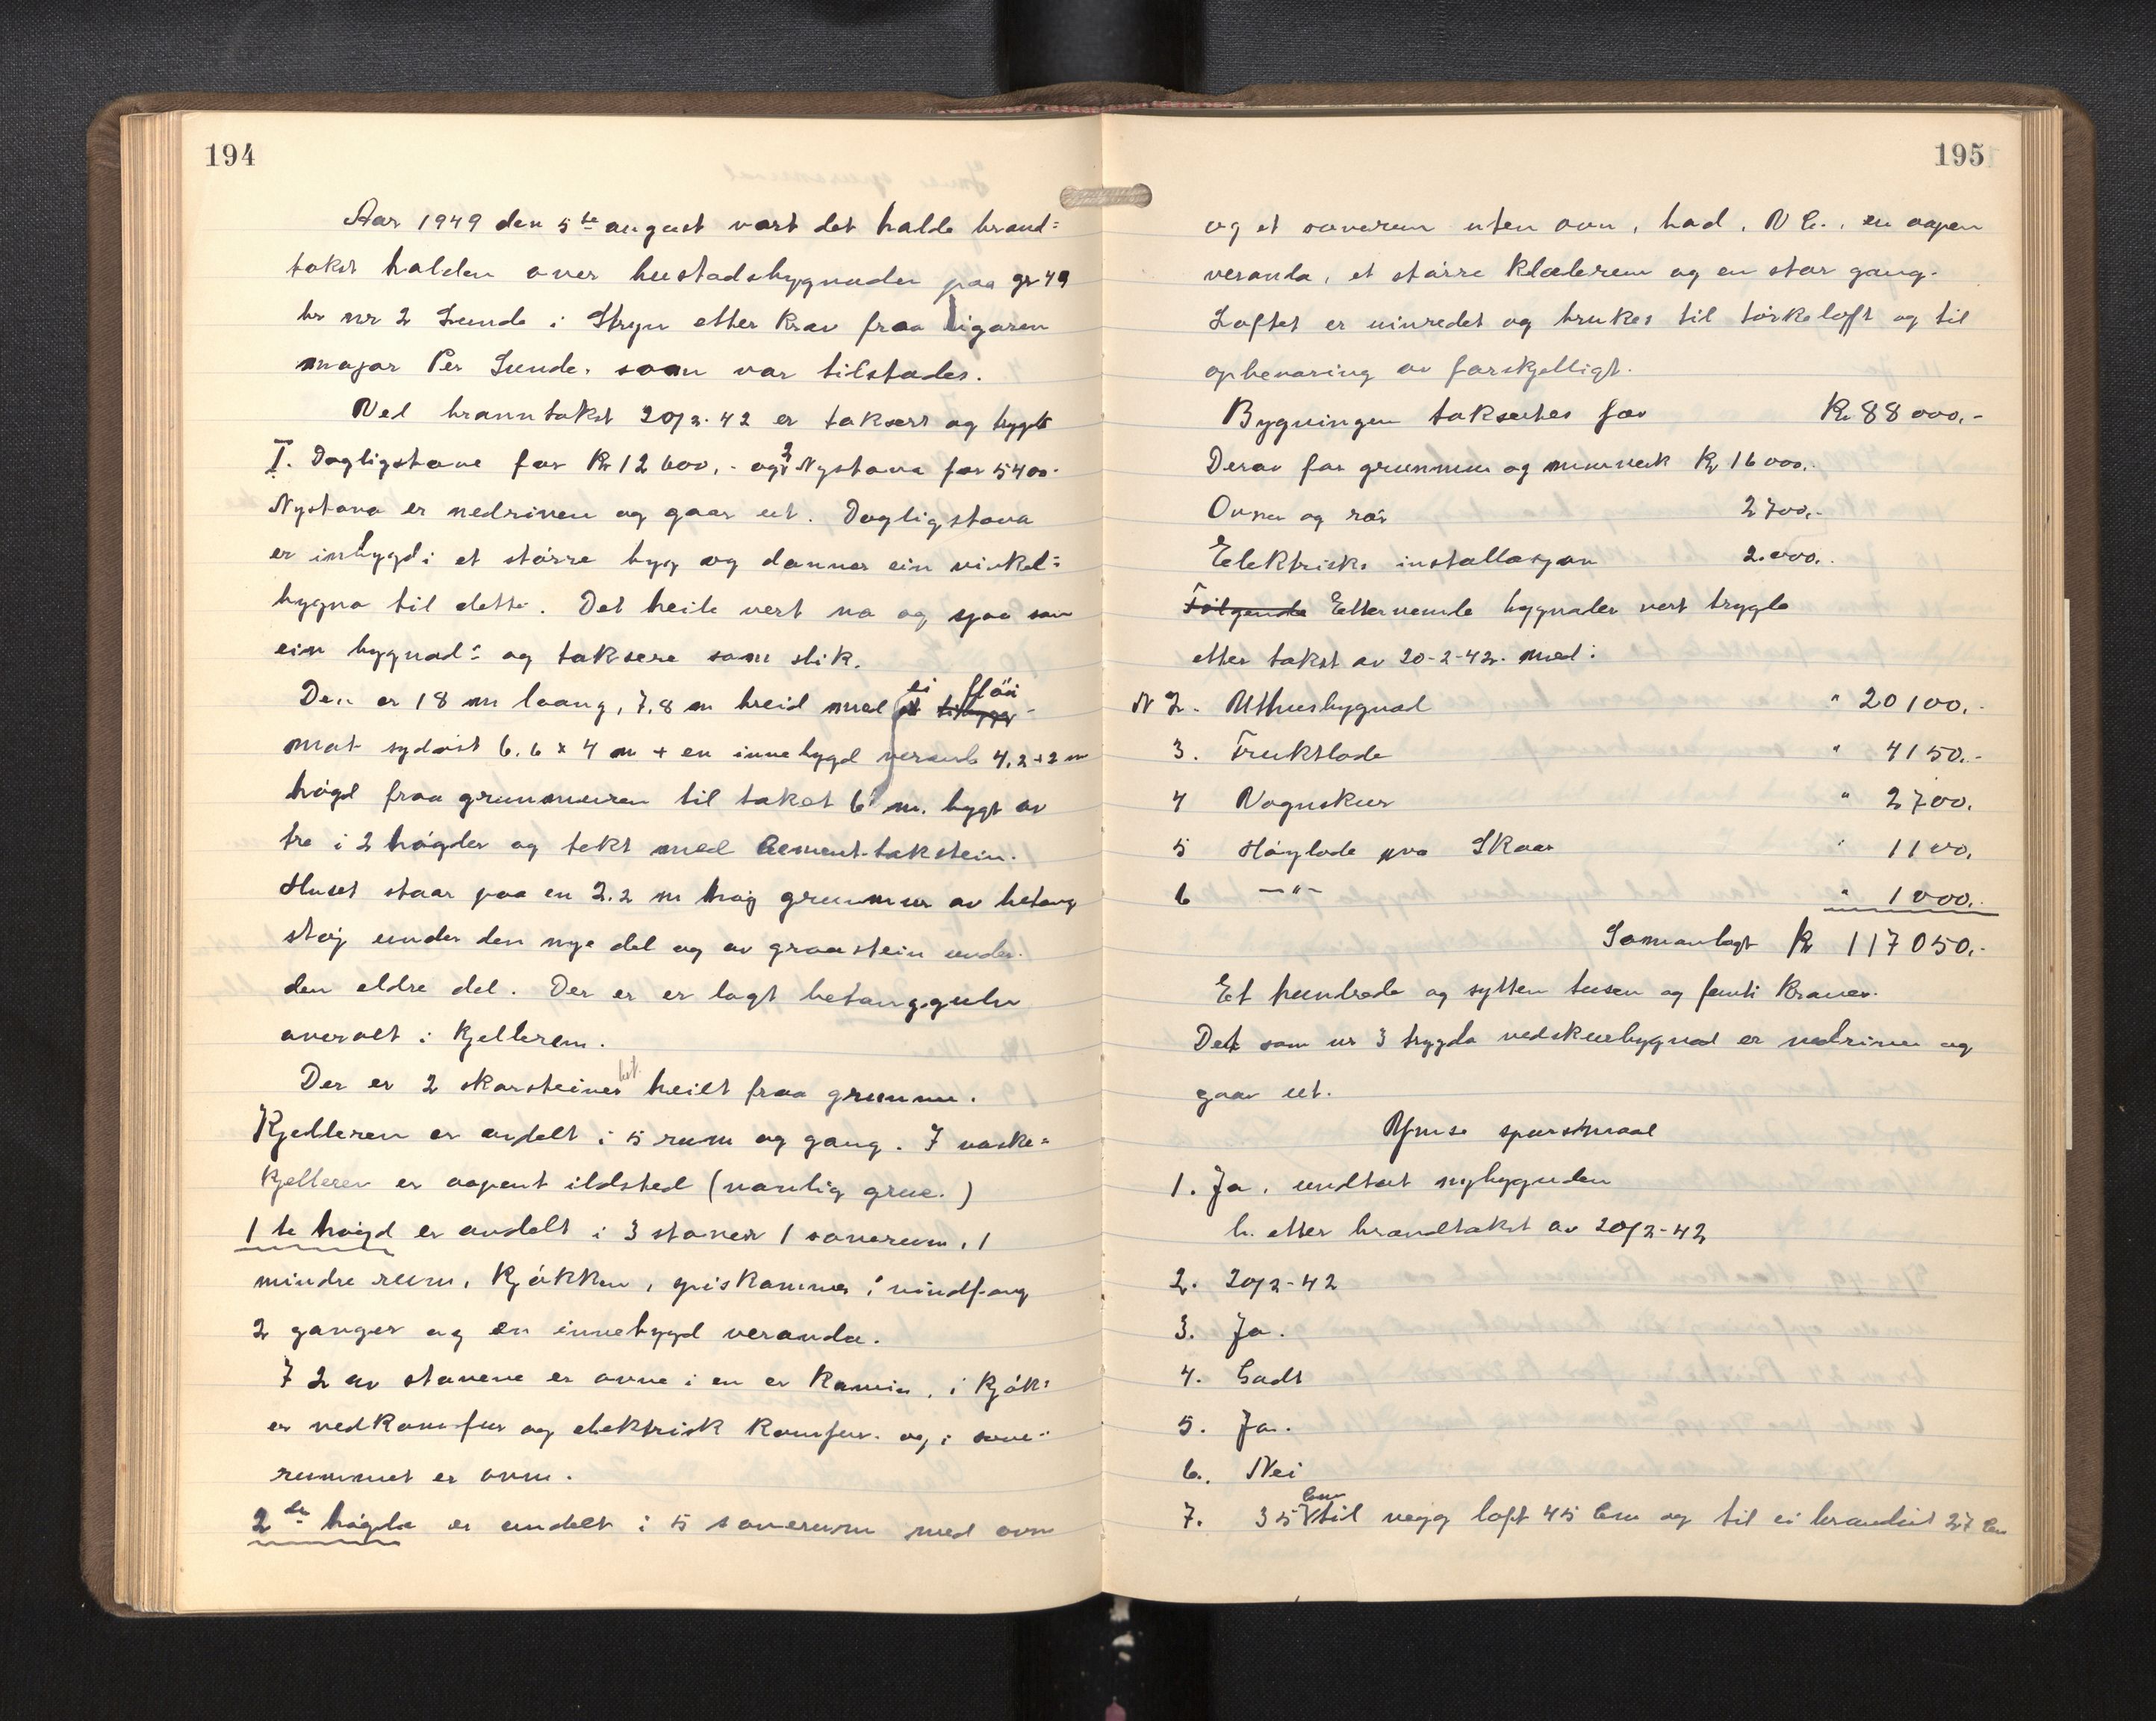 194
Aar 1949 den 5te august vart det halde brand=
takst halden over hustadsbygnaden paa gr 49
br nr 2 Sunde i Stryn etter krav fraa eigaren
major Per Sunde, som var tilstades.
Ved branntakst 20/2-42 er taksert og trygda
I. Dagligstove for Kr 12 600,- og 2 Nystova for 5400.-
Nystova er nedriven og gaar ut. Dagligstova
er inbygd i et större bygg og danner ein vinkel=
bygna til dette. Det heile vert no og sjaa som
ein bygnad og taksere som slik.
Den er 18 m laang, 7,8 m breid med ei flöi
mot sydöst 6.6 x 4 m + en innebygd veranda 4,2 + 2 m
högd fraa grunmuren til taket 6 m. bygt av
tre i 2 högder og tekt med Cement-takstein.
Huset staar paa en 2.2 m höy grunmur av betong
stöp under den nye del og av graastein under
den eldre del. Der er er lagt betonggulv
overalt i kjellerem.
Der er 2 skorsteiner heilt fraa grunnen.
Kjelleren er avdelt i 5 rum og gang. I vaske=
kjelleren er aapent ildsted (vanlig grue.)
1 te högd er avdelt i 3 stover 1 soverum, 1
mindre rum, kjökken, spiskammer, vindfang
2 ganger og en innebygd veranda.
I 2 av stovene er ovne i en er kamin, i kjök=
er vedkomfur og elektrisk komfur. og i sove-
rummet er ovn.
2 de högde er avdelt i 5 soverum med ovn
195
og et soverum uten ovn, bad, W C., en aapen
veranda, et större klæderum og en stor gang.
Loftet er uinredet og brukes til törkeloft og til
opbevaring av forskjelligt.
Bygningen takseres for Kr 88 000,-
Derav for grunmur og murverk Kr 16 000,-
Ovner og rör 2700,-
Elektrisk installasjon 2.000,-
Fölgende Etternemde bygnader vert trygda
etter takst av 20-2-42. med:
N 2. Uthusbygnad " 20100.-
3. Fruktlade " 4150.-
4 Vognskur " 2700.
5 Höylade paa Skaar " 1100.
6 —"— " 1000.
Samanlagt Kr 117050.-
Et hundrede og sytten tusen og femti Kroner.
Det som nr 3 trygda vedskurbygnad er nedriven og
gaar ut.
Ymse spursmaal
1. Ja, undtat nybygnden
b. etter brandtakst av 20/2-42
2. 20/2-42
3. Ja.
4. Godt
5. Ja.
6. Nei
7. 35 Cm til vegg loft 45 Cm og til ei brandmur 27 Cm